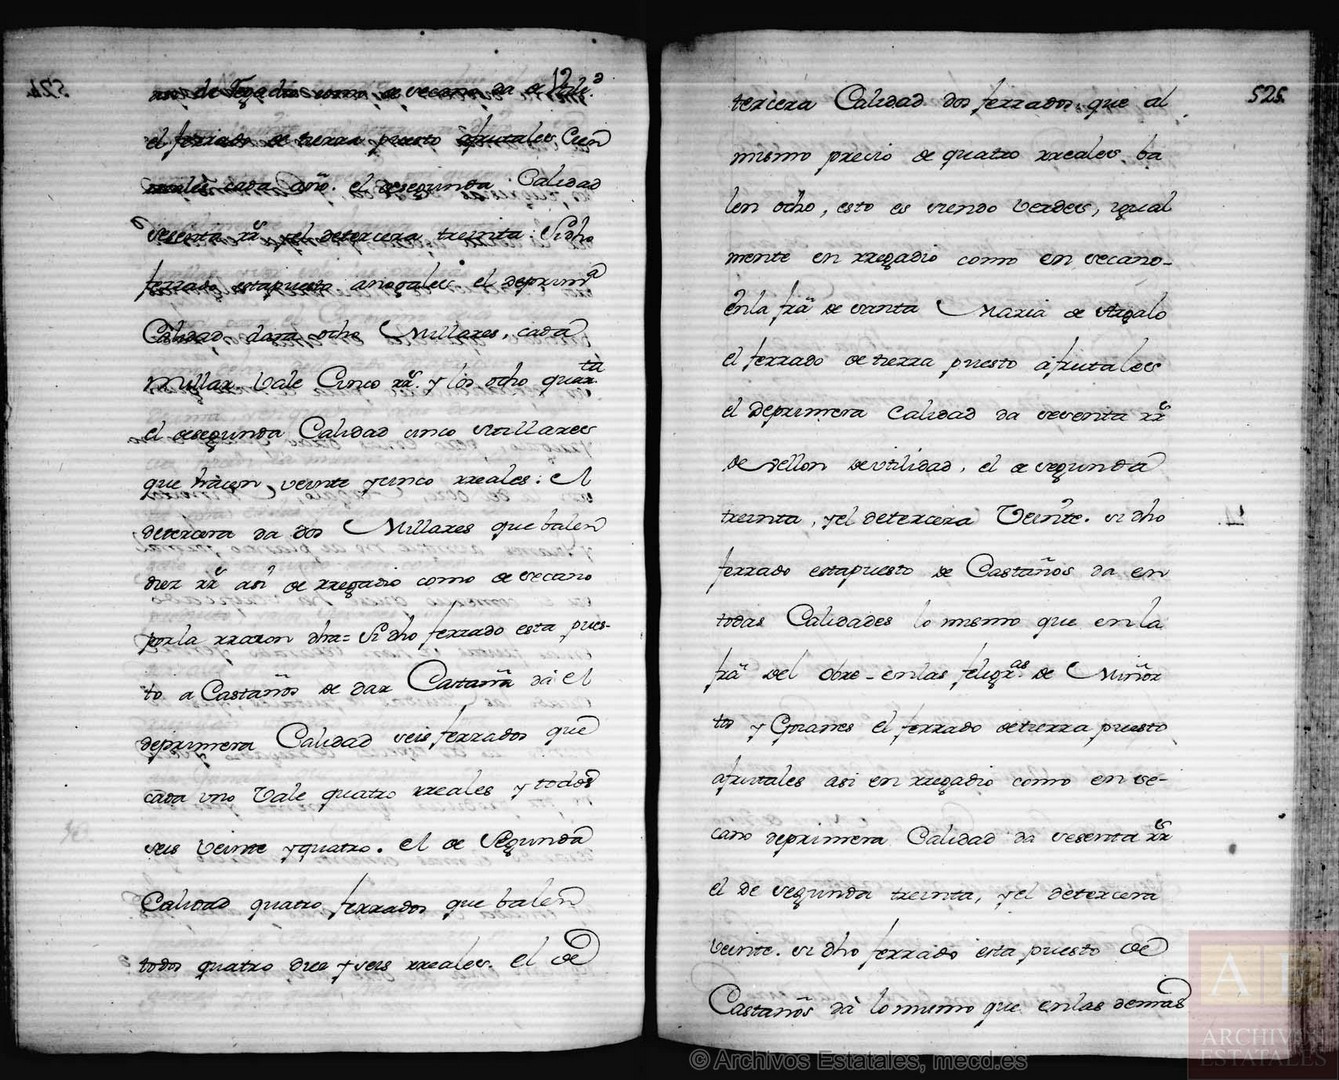 12
asi de rregadio como de secano da de utilid.
el ferrado de tierra puesto afrutales Cien
rreales cada año. el desegunda Calidad
sesenta rrs. yel detercera treinta: Sidho
ferrado estapuesto anogales el deprima.
Calidad dara ocho Millares, cada
Millar Vale Cinco rrs. y los ocho quarta.
el desegunda Calidad cinco Millares
que hàcen veinte ycinco rreales: El
detercera da dos Millares que balen
diez rrs asi de rregadio como de secano
porla rrazon dha= Sidho ferrado esta pues-
to a Castaños de dar Castaña dà el
deprimera Calidad seis ferrados que
cada uno Vale quatro rreales y todos
seis veinte yquatro. el de Segunda
Calidad quatro ferrados que balen
todos quatro diez yseis rreales. el de
525.
tercera Calidad dos ferrados, que al
mismo precio de quatro rreales ba
len ocho, esto es siendo verdes, igual
mente en rregadio como en secano-
enla fra. de santa Maria de Argalo
el ferrado de tierra puesto áfrutales
el deprimera Calidad da sesenta rrs
de vellon de utilidad, el de segunda
treinta, yel detercera Veinte. si dho
ferrado estapuesto de Castaños da en
todas Calidades lo mismo que en la
fra. del Obre - enlas feligras. de Miñor
tos y Goianes el ferrado de tierra puesto
afrutales asi en rregadio como en se-
cano deprimera Calidad da sesenta rrs
el de segunda treinta, yel detercera
veinte. si dho ferrado esta puesto de
Castaños dà lo mismo que enlas demas
© Archivos Estatales, mecd.es
AE
ARCHIVOS
ESTATALES